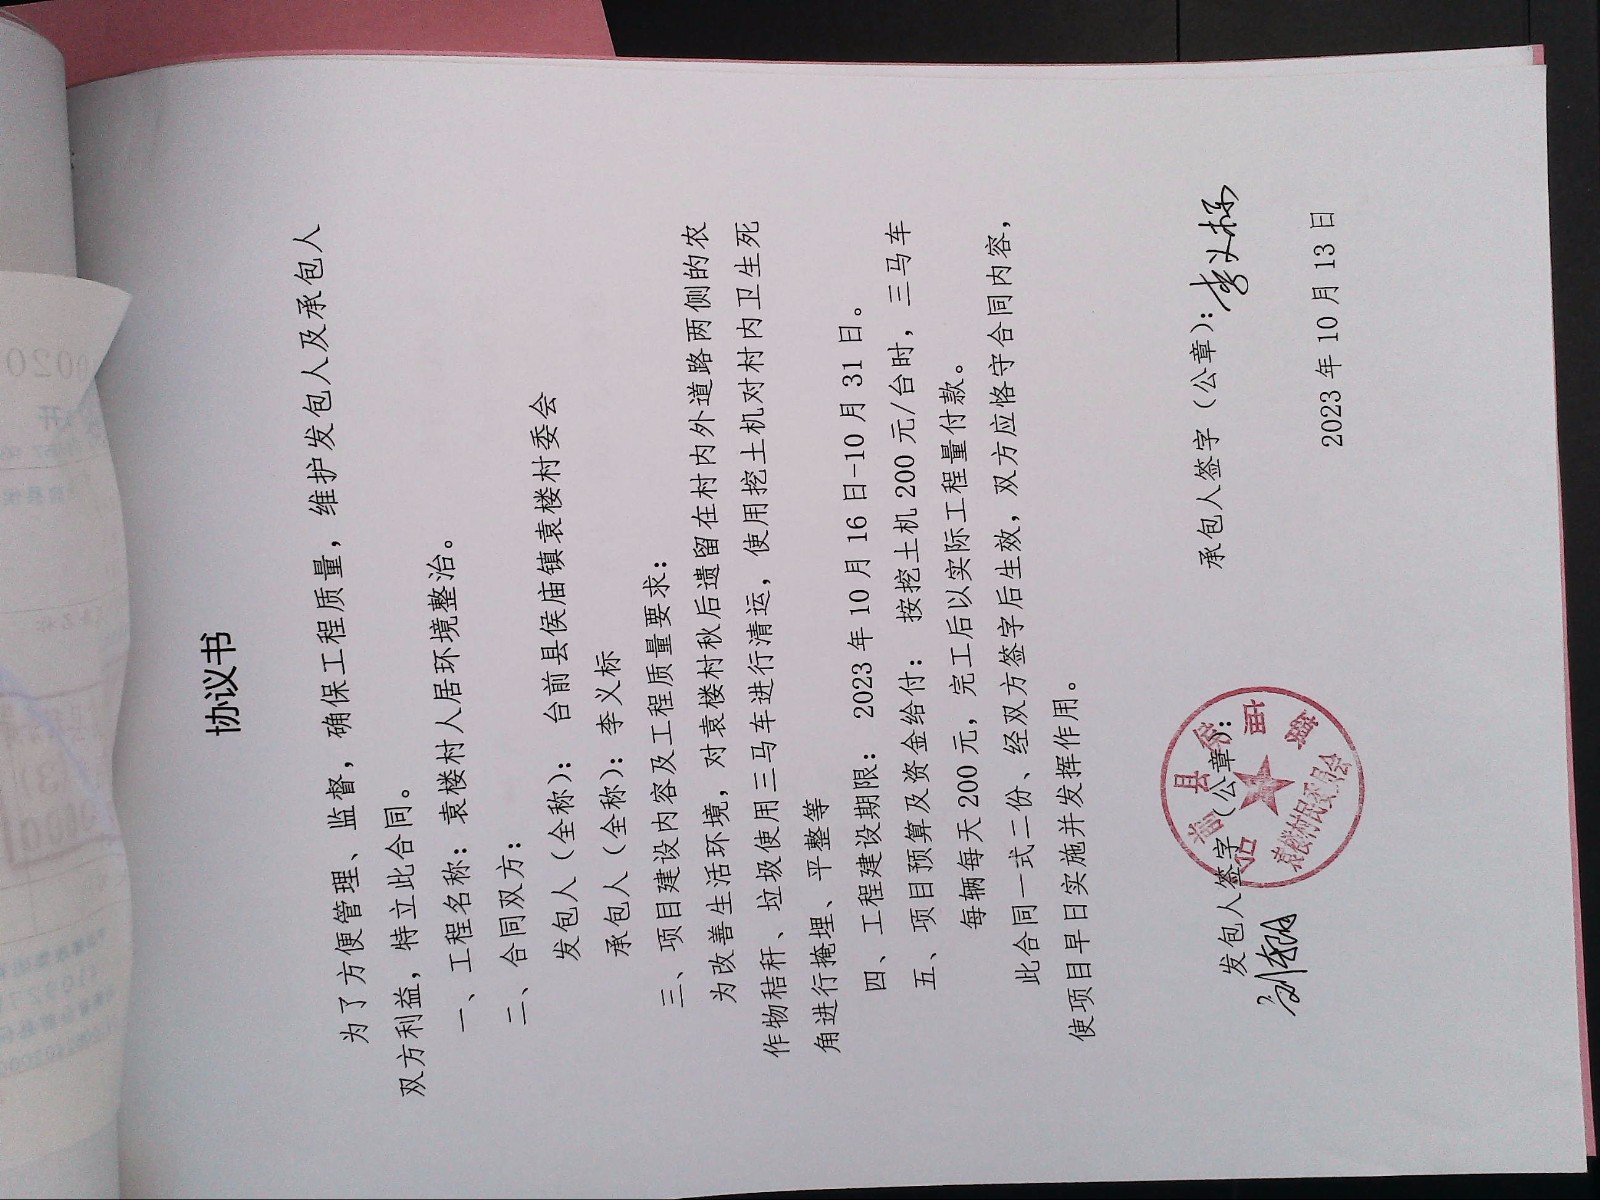 协议书
为了方便管理、监督，确保工程质量，维护发包人及承包人
双方利益，特立此合同。
一、工程名称：袁楼村人居环境整治。
二、合同双方：
发包人（全称）： 台前县侯庙镇袁楼村委会
承包人（全称）：李义标
三、项目建设内容及工程质量要求：
为改善生活环境，对袁楼村秋后遗留在村内外道路两侧的农
作物秸秆、垃圾使用三马车进行清运，使用挖土机对村内卫生死
角进行掩埋、平整等
四、工程建设期限： 2023年10月16日-10月31日。
五、项目预算及资金给付： 按挖土机200元/台时，三马车
每辆每天200元，完工后以实际工程量付款。
此合同一式二份、经双方签字后生效，双方应恪守合同内容，
使项目早日实施并发挥作用。
发包人签字（公章）： 承包人签字（公章）：李义标
台前县侯庙镇
袁楼村民委员会
2023年10月13日